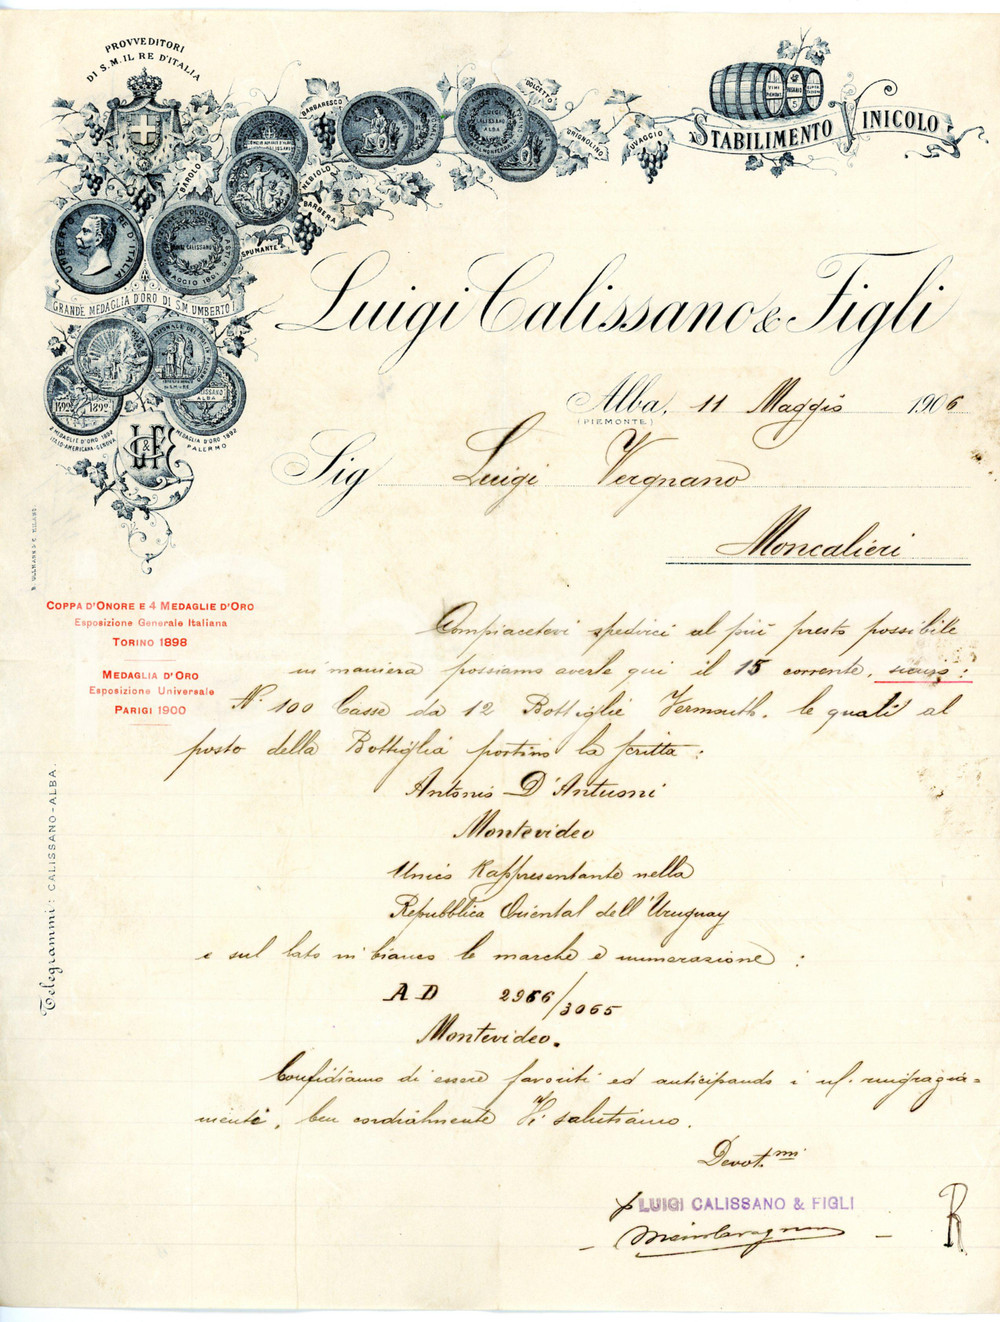 PROVVEDITORI
DI S.M. IL RE D'ITALIA
BAROLO
BARBARESCO
NEBIOLO
BARBERA
DOLCETTO
GRIGNOLINO
UVAGGIO
SPUMANTE
STABILIMENTO VINICOLO
LUIGI CALISSANO ALBA
UMBERTO RE D'ITALIA
GRANDE MEDAGLIA D'ORO DI S.M. UMBERTO I
1492 1892
CALISSANO ALBA
2 MEDAGLIE D'ORO 1892
ITALO-AMERICANA-GENOVA
MEDAGLIA D'ORO 1892
PALERMO
LC&F
Luigi Calissano & Figli
Alba, 11 Maggio 1906
(PIEMONTE)
Sig Luigi Vergnano
Moncalieri
COPPA D'ONORE E 4 MEDAGLIE D'ORO
Esposizione Generale Italiana
TORINO 1898
MEDAGLIA D'ORO
Esposizione Universale
PARIGI 1900
Telegrammi: CALISSANO-ALBA.
Compiacetevi spedirci al più presto possibile
in maniera possiamo averle qui il 15 corrente, sicuro:
N. 100 Casse da 12 Bottiglie Vermouth, le quali al
posto della Bottiglia portino la scritta:
Antonio D'Antuoni
Montevideo
Unico Rappresentante nella
Repubblica Oriental dell'Uruguay
e sul lato in bianco le marche e numerazione:
AD 2966/3065
Montevideo.
Confidiamo di essere favoriti ed anticipando i
, ben cordialmente Vi salutiamo.
Devot.mi
p LUIGI CALISSANO & FIGLI
R